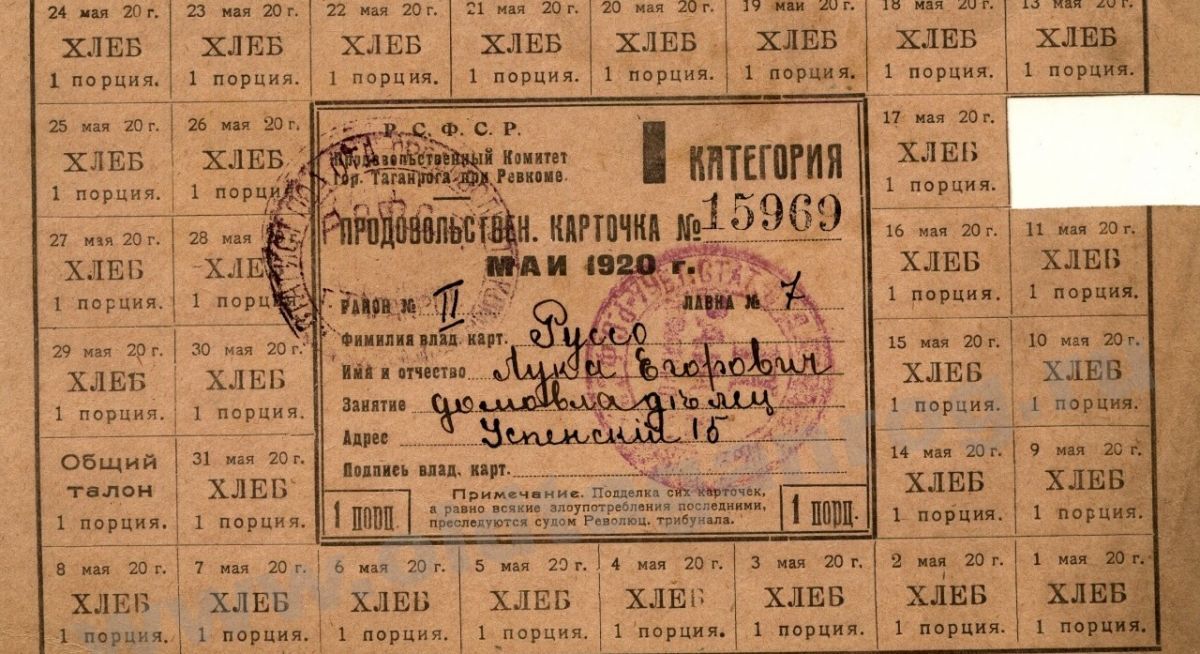 24 мая 20 г. 23 мая 20 г. 22 мая 20 г. 21 мая 20 г. 20 мая 20 г. 19 маи 20 г. 18 мая 20 г. 13 мая 20 г.
ХЛЕБ ХЛЕБ ХЛЕБ ХЛЕБ ХЛЕБ ХЛЕБ ХЛЕБ ХЛЕБ
1 порция. 1 порция. 1 порция. 1 порция. 1 порция. 1 порция. 1 порция. 1 порция.
25 мая 20 г. 26 мая 20 г.
ХЛЕБ ХЛЕБ
1 порция. 1 порция
27 мая 20 г. 28 мая
ХЛЕБ ХЛЕБ
1 порция. 1 порц
29 мая 20 г. 30 мая 20 г.
ХЛЕБ ХЛЕБ
1 порция. 1 порция.
Общий талон 31 мая 20 г.
ХЛЕБ
1 порция. 1 порция.
Р. С. Ф. С. Р.
Продовольственный Комитет
гор. Таганрога при Ревкоме.
I КАТЕГОРИЯ
ПРОДОВОЛЬСТВЕН. КАРТОЧКА № 15969
МАИ 1920 г.
РАЙОН № II ЛАВКА № 7
Фамилия влад. карт. Руссо
Имя и отчество Лука Егорович
Занятие домовладѣлец
Адрес Успенскій 15
Подпись влад. карт.
Примечание. Подделка сих карточек,
а равно всякие злоупотребления последними,
преследуются судом Революц. трибунала.
1 порц. 1 порц.
17 мая 20 г.
ХЛЕБ
1 порция.
16 мая 20 г. 11 мая 20 г.
ХЛЕБ ХЛЕБ
1 порция. 1 порция.
15 мая 20 г. 10 мая 20 г.
ХЛЕБ ХЛЕБ
1 порция. 1 порция.
14 мая 20 г. 9 мая 20 г.
ХЛЕБ ХЛЕБ
1 порция. 1 порция.
8 мая 20 г. 7 мая 20 г. 6 мая 20 г. 5 мая 20 г. 4 мая 20 г. 3 мая 20 г. 2 мая 20 г. 1 мая 20 г.
ХЛЕБ ХЛЕБ ХЛЕБ ХЛЕБ ХЛЕБ ХЛЕБ ХЛЕБ ХЛЕБ
1 порция. 1 порция. 1 порция. 1 порция. 1 порция. 1 порция. 1 порция. 1 порция.